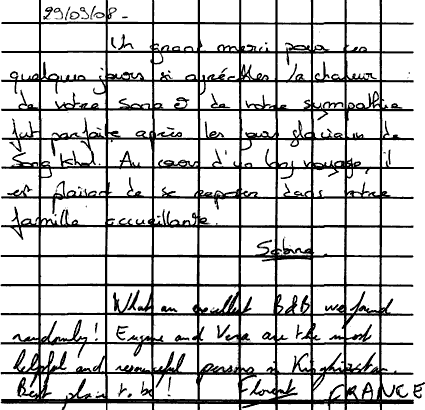 29/09/08.
Un grand merci pour ces
quelques jours si agréables la chaleur
de votre sona et de votre sympathie
fut parfaite après les jours glaciaux de
Song Khol. Au cours d'un long voyage, il
est plaisant de se reposer dans votre
famille accueillante.
Sabine.
What an excellent B&B we found
randomly! Eugene and Vera are the most
helpful and resourceful persons in Kirghizstan.
Best place to be! Florent FRANCE